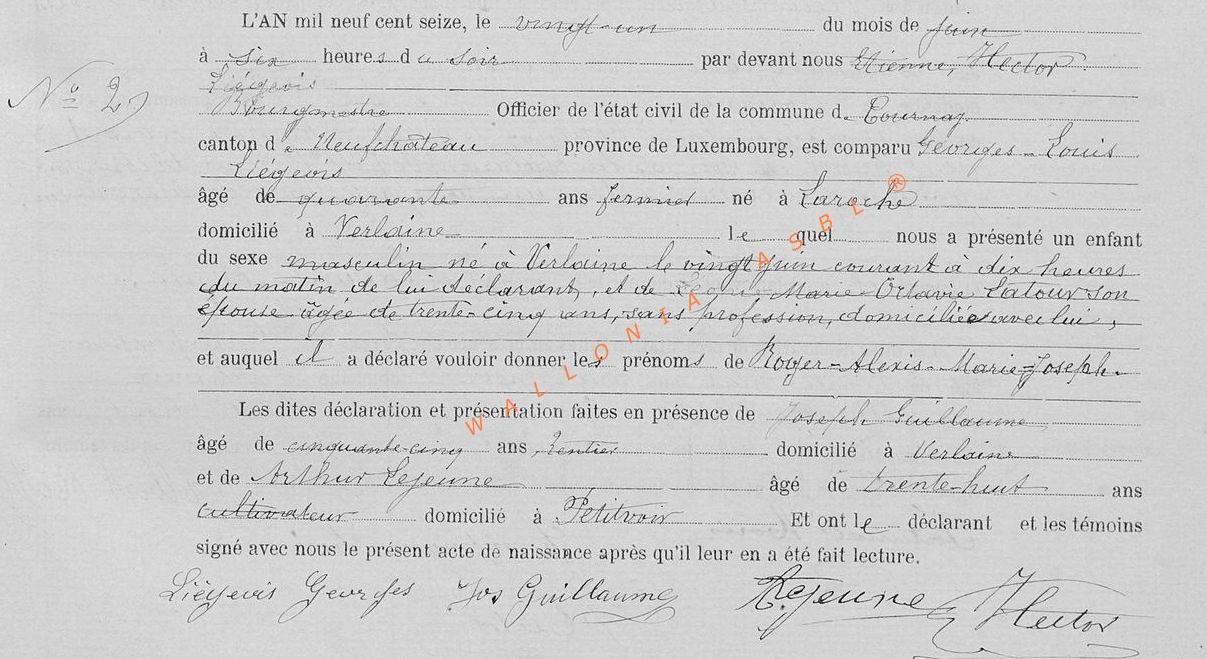 L'AN mil neuf cent seize, le vingt-un du mois de juin
à six heures du soir par devant nous Etienne, Hector
Liégeois
Nº 2
Bourgmestre Officier de l'état civil de la commune de Tournay
canton de Neufchâteau province de Luxembourg, est comparu Georges-Louis
Liégeois
âgé de quarante ans fermier né à Laroche
domicilié à Verlaine lequel nous a présenté un enfant
du sexe masculin né à Verlaine le vingt juin courant à dix heures
du matin de lui déclarant, et de Marie-Octavie Latour son
épouse âgée de trente-cinq ans, sans profession, domiciliée avec lui,
et auquel il a déclaré vouloir donner les prénoms de Royer-Alexis-Marie-Joseph.
Les dites déclaration et présentation faites en présence de Joseph Guillaume
âgé de cinquante-cinq ans Rentier domicilié à Verlaine
et de Arthur Lejeune âgé de trente-huit ans
cultivateur domicilié à Petitvoir Et ont le déclarant et les témoins
signé avec nous le présent acte de naissance après qu'il leur en a été fait lecture.
Liégeois Georges Jos Guillaume A. Lejeune Hector
WALLONIA ASBL ®